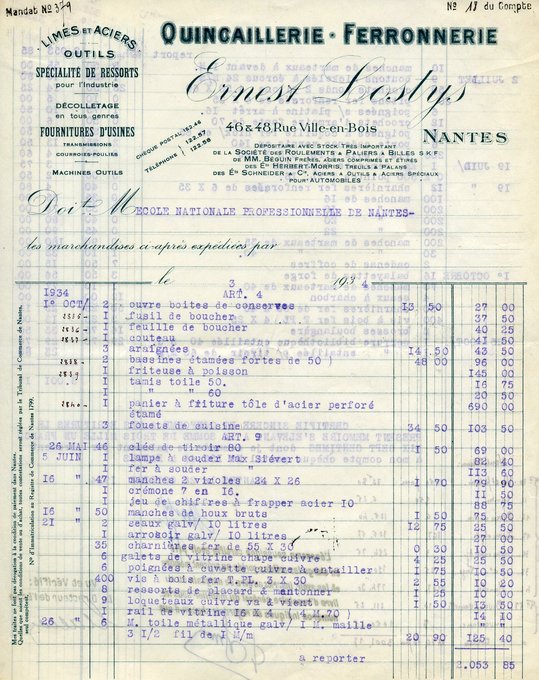 Mandat No 379
No 17 du Compte
LIMES ET ACIERS
OUTILS
SPÉCIALITÉ DE RESSORTS
pour l'Industrie
DÉCOLLETAGE
en tous genres
FOURNITURES D'USINES
TRANSMISSIONS
COURROIES-POULIES
MACHINES OUTILS
QUINCAILLERIE - FERRONNERIE
Ernest Lostys
46 & 48, Rue Ville-en-Bois
NANTES
CHÈQUE POSTAL
TÉLÉPHONE
DÉPOSITAIRE AVEC STOCK TRÈS IMPORTANT
DE LA SOCIÉTÉ DES ROULEMENTS & PALIERS A BILLES S.K.F.
DE MM. BÉGUIN FRÈRES, ACIERS COMPRIMÉS ET ÉTIRÉS
DES ETS HERBERT-MORRIS, TREUILS & PALANS
DES ETS SCHNEIDER & CIE, ACIERS A OUTILS & ACIERS SPÉCIAUX
POUR AUTOMOBILES
Doit M ECOLE NATIONALE PROFESSIONNELLE DE NANTES-
les marchandises ci-après expédiées par
le 3 1934
1934 ART. 4
I° OCT/ 2 ouvre boites de conserves I3 50 27 00
2835- I fusil de boucher 37 50
2836- I feuille de boucher 40 25
2837- I couteau 41 50
3 araignées I4 50 43 50
2838- 2 bassines étamées fortes de 50 48 00 96 00
2839 I friteuse à poisson I45 00
I tamis toile 50. I6 75
I " " 60 20 50
2840- I panier à friture tôle d'acier perforé 690 00
étamé
3 fouets de cuisine 34 50 I03 50
ART. 9
26 MAI 46 clés de tiroir 80 I 50 69 00
5 JUIN I lampe à souder Max Siévert 82 40
I fer à souder " II3 60
I6 " 47 manches 2 viroles 24 X 26 I 70 79 90
I crémone 7 en I6. II 50
I jeu de chiffres à frapper acier I0 88 75
I6 " 50 manches de houx bruts I 50 75 00
2I " 2 seaux galv/ 10 litres I2 75 25 50
I arrosoir galv/ 10 litres 27 00
35 charnières fer de 55 X 30 0 30 I0 50
6 galets de vitrine chape cuivre 4 25 25 50
6 poignées à cuvette cuivre à entailler I 75 I0 50
400 vis à bois fer T.PL. 3 X 30 2 55 I0 20
8 ressorts de placard & mantonner I 25 I0 00
9 loqueteaux cuivre va & vient I 50 I3 50
I rail de vitrine I6 X 4 ( 4 M.70 ) I4 I0
26 " 6 M. toile métallique galv/ I M. maille " "
3 I/2 fil de I M/m 20 90 I25 40
a reporter 2.053 85
Mes traites ne font pas dérogation à la condition de paiement devant le Tribunal de Commerce de Nantes.
N° d'immatriculation au Registre de Commerce de Nantes 1799.